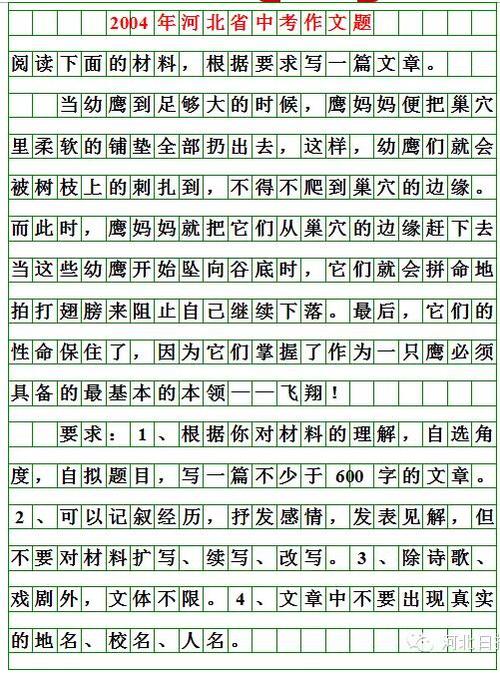 2004年河北省中考作文题
阅读下面的材料，根据要求写一篇文章。
当幼鹰到足够大的时候，鹰妈妈便把巢穴
里柔软的铺垫全部扔出去，这样，幼鹰们就会
被树枝上的刺扎到，不得不爬到巢穴的边缘。
而此时，鹰妈妈就把它们从巢穴的边缘赶下去
当这些幼鹰开始坠向谷底时，它们就会拼命地
拍打翅膀来阻止自己继续下落。最后，它们的
性命保住了，因为它们掌握了作为一只鹰必须
具备的最基本的本领——飞翔！
要求：1、根据你对材料的理解，自选角
度，自拟题目，写一篇不少于600字的文章。
2、可以记叙经历，抒发感情，发表见解，但
不要对材料扩写、续写、改写。3、除诗歌、
戏剧外，文体不限。4、文章中不要出现真实
的地名、校名、人名。
河北日